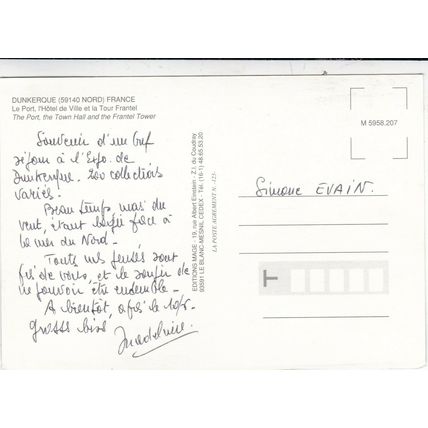 DUNKERQUE (59140 NORD) FRANCE
Le Port, l'Hôtel de Ville et la Tour Frantel
The Port, the Town Hall and the Frantel Tower
Souvenir d'un bref
séjour à l'Expo. de
Dunkerque. 200 collections
variés.
Beau temps mais du
vent, étant face à
la mer du Nord.
Toutes mes pensées sont
près de vous, et le
ne pouvoir être ensemble.
A bientôt, après le
Grosses bises
EDITIONS MAGE - 19, rue Albert Einstein - Z.I. du Coudray
93591 LE BLANC-MESNIL CEDEX - Tél. (16-1) 48.65.53.20
LA POSTE AGREMENT N. -125-
M 5958.207
Simone EVAIN.